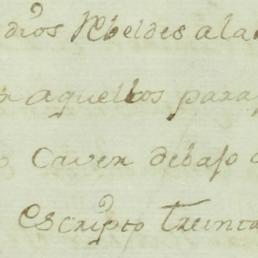 dios Rebeldes ala
aquellos para
Caver debajo
escripto treinta